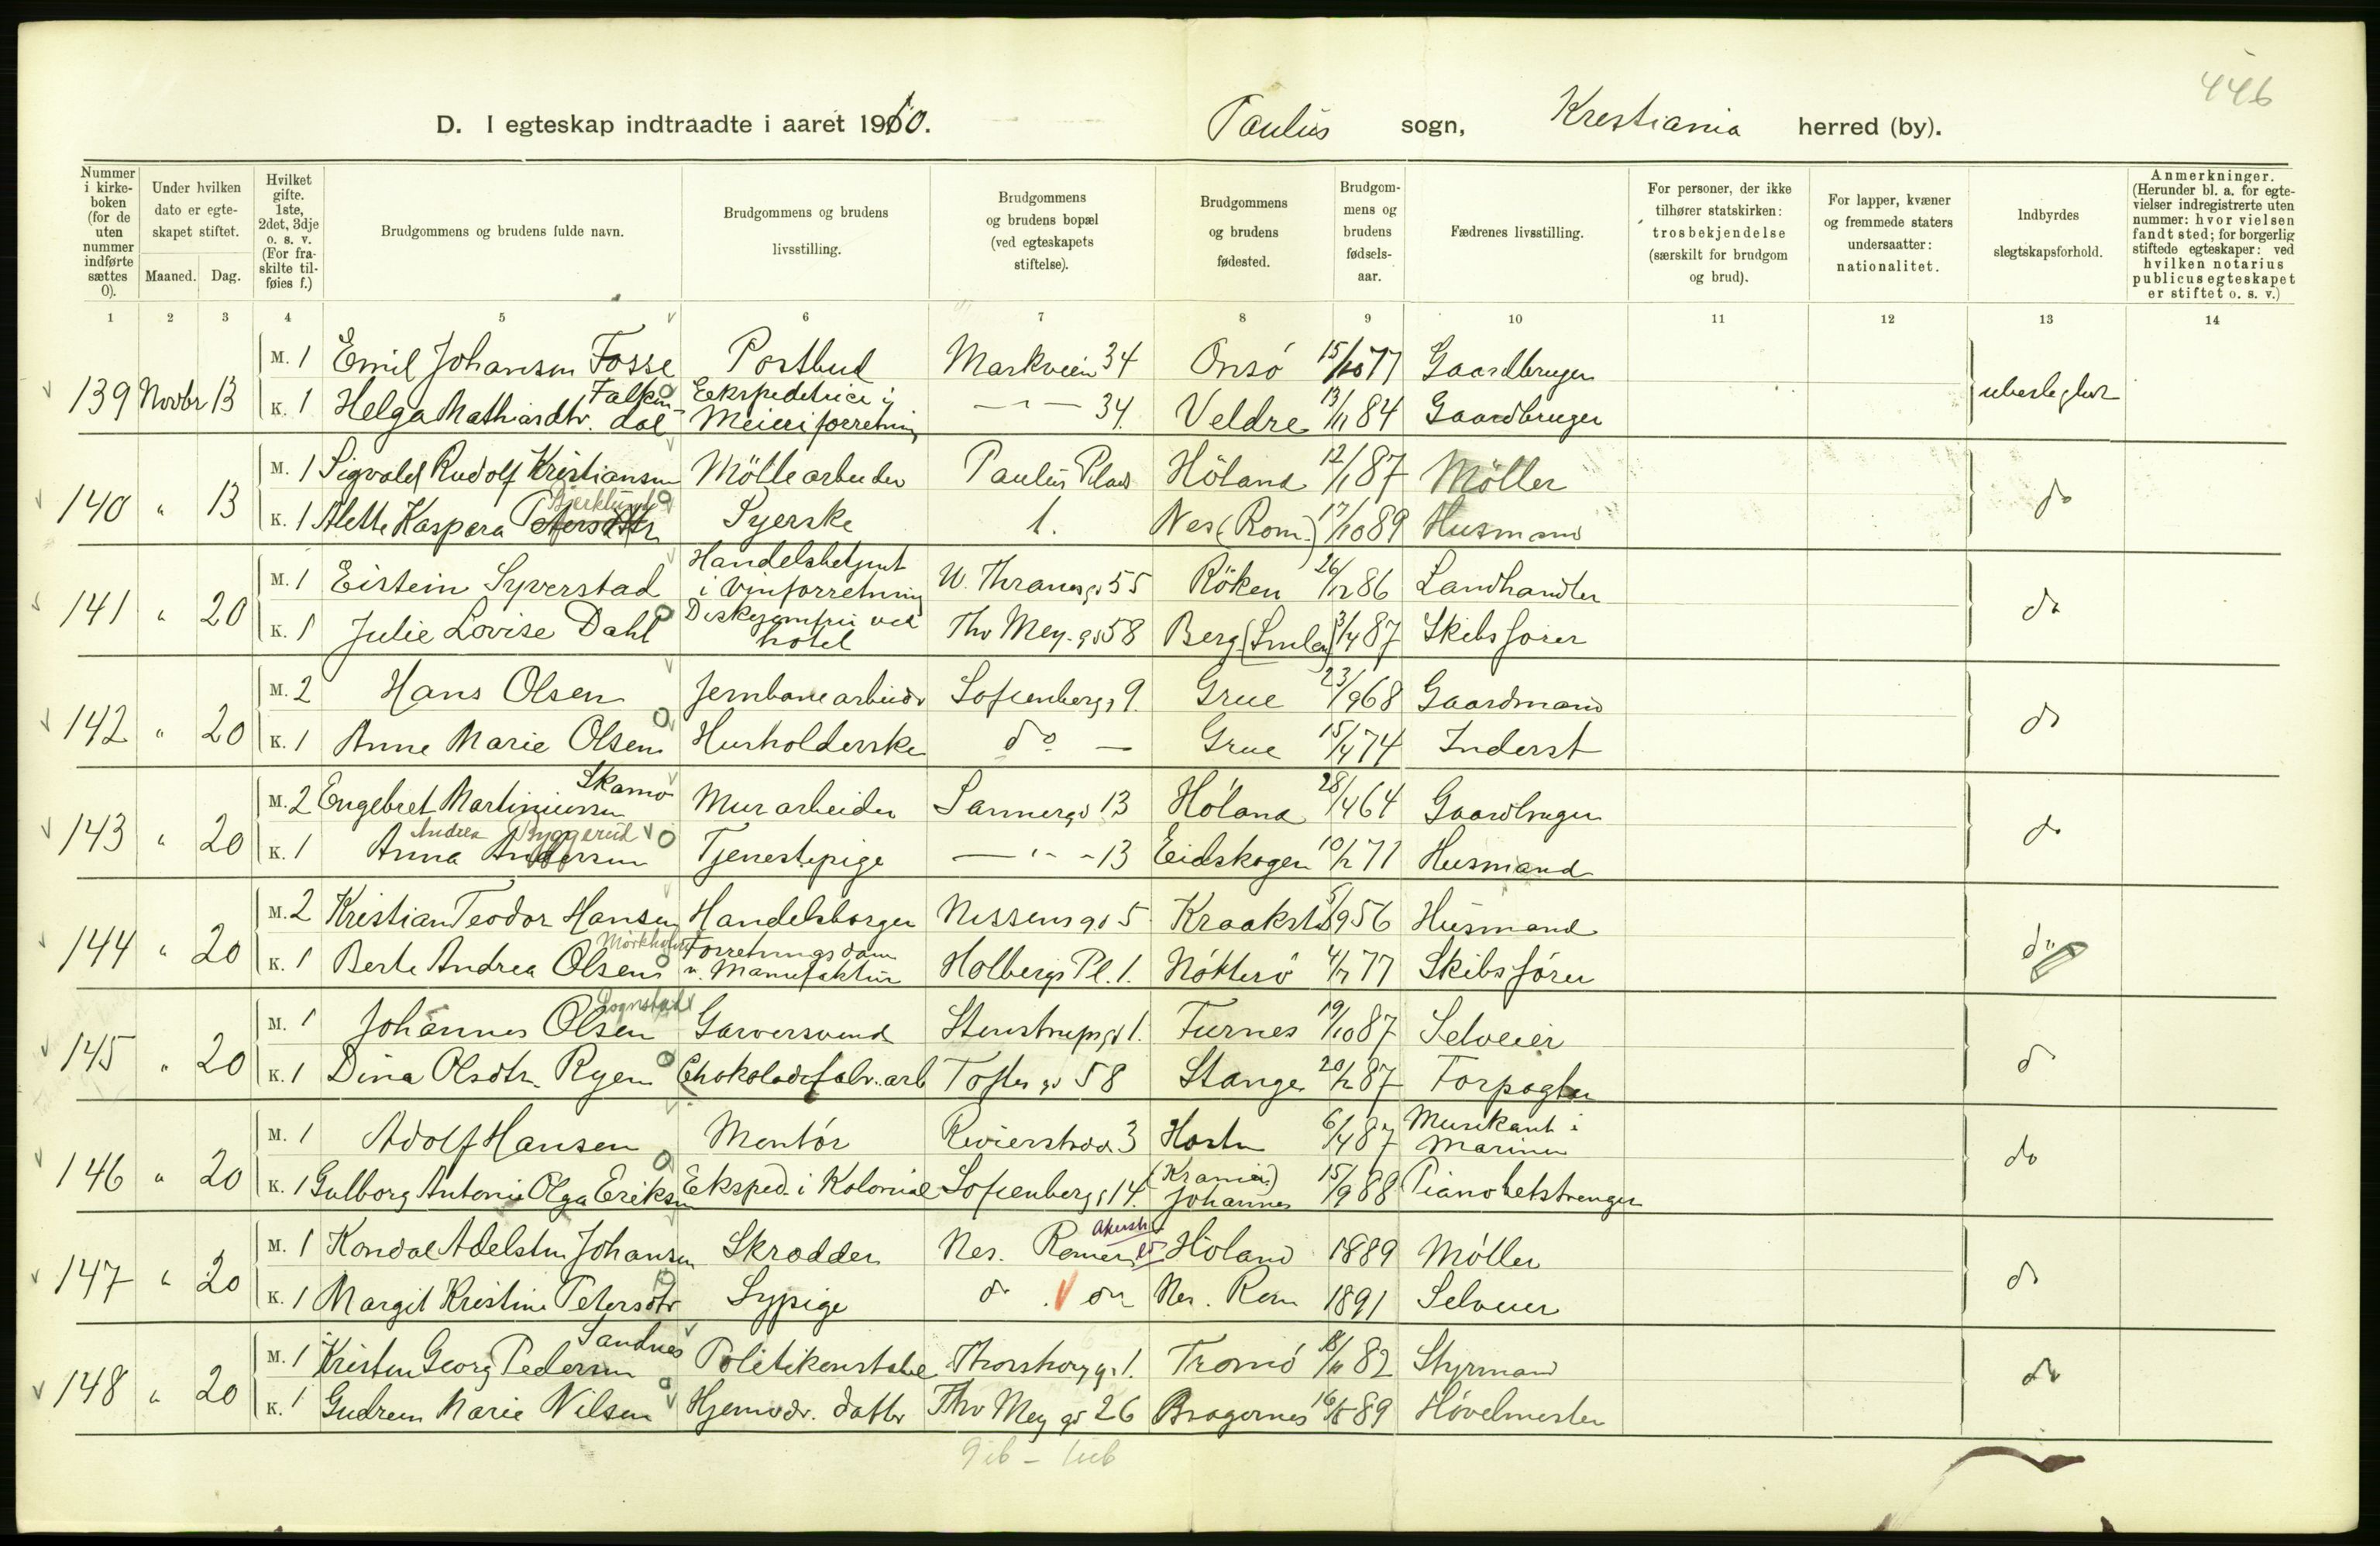 446
D. I egteskap indtraadte i aaret 1910. Paulus sogn, Krestiania herred (by).
Nummer i kirkeboken (for de uten nummer indførte sættes 0).
Under hvilken dato er egteskapet stiftet.
Maaned. Dag.
Hvilket gifte. 1ste, 2det, 3dje o. s. v. (For fraskilte tilføies f.)
Brudgommens og brudens fulde navn.
Brudgommens og brudens livsstilling.
Brudgommens og brudens bopæl (ved egteskapets stiftelse).
Brudgommens og brudens fødested.
Brudgommens og brudens fødselsaar.
Fædrenes livsstilling.
For personer, der ikke tilhører statskirken: trosbekjendelse (særskilt for brudgom og brud).
For lapper, kvæner og fremmede staters undersaatter: nationalitet.
Indbyrdes slegtskapsforhold.
Anmerkninger. (Herunder bl. a. for egtevielser indregistrerte uten nummer: hvor vielsen fandt sted; for borgerlig stiftede egteskaper: ved hvilken notarius publicus egteskapet er stiftet o. s. v.)
1 2 3 4 5 6 7 8 9 10 11 12 13 14
139 Novbr 13 M. 1 Emil Johansen Fosse Postbud Markveien 34 Onsö 15/10 77 Gaardbruger ubeslegtet
K. 1 Helga Mathiasdtr. Falkendal Ekspeditrice i Meieriforretning — " — 34. Veldre 13/11 84 Gaardbruger
140 " 13 M. 1 Sigvald Rudolf Kristiansen Möllearbeider Paulus Plads Höland 12/1 87 Möller do
K. 1 Alette Kaspara Petersdtr Bjerklund Syerske 1. Nes (Rom.) 17/10 89 Husmand
141 " 20 M. 1 Eistein Syverstad Handelsbetjent i Vinforretning W. Thranesgd 55 Röken 26/12 86 Landhandler do
K. 1 Julie Lovise Dahl Diskejomfru ved hotel Thv Mey. gd 58 Berg (Smlen) 3/4 87 Skibsförer
142 " 20 M. 2 Hans Olsen Jernbanearbeider Sofienbergg 9. Grue 23/9 68 Gaardmand do
K. 1 Anne Marie Olsen Husholderske do — Grue 15/4 74 Inderst
143 " 20 M. 2 Engebret Martiniussen Skamo Murarbeider Sannergd 13 Höland 28/4 64 Gaardbruger do
K. 1 Anna Andersen Andrea Byggerud Tjenestepige — " - 13 Eidskogen 10/2 71 Husmand
144 " 20 M. 2 Kristian Teodor Hansen Handelsborger Nissensgd 5 Kraakstd 5/9 56 Husmand do
K. 1 Berte Andrea Olsen Mörkholm Forretningsdam. v. Manufaktur Holbergs Pl. 1. Nötterö 4/7 77 Skibsförer
145 " 20 M. 1 Johannes Olsen Sognstad Garversvend Stenstrupsgd 1. Furnes 19/10 87 Selveier do
K. 1 Dina Olsdtr. Ryen Chokoladefabr. arb Toftesgd 58 Stange 20/2 87 Forpagter
146 " 20 M. 1 Adolf Hansen Montör Revierstræd. 3 Horten 6/4 87 Musikant i Marinen do
K. 1 Gulborg Antonie Olga Eriksen Eksped. i Kolonial Sofienbergg 14. (Krania.) Johannes 15/9 88 Pianobetstrenger
147 " 20 M. 1 Kondal Adelsten Johansen Skrædder Nes. Romerike Akersh. Höland 1889 Möller do
K. 1 Margit Kristine Petersdtr Sypige do do Nes. Rom 1891 Selveier
148 " 20 M. 1 Kristen Georg Pedersen Sandnes Politikonstabel Thorshovg. 1. Tromö 18/11 82 Styrmand do
K. 1 Gudrun Marie Nilsen Hjemvdr. datter Thv Mey gd 26 Bragernes 16/5 89 Hövelmester